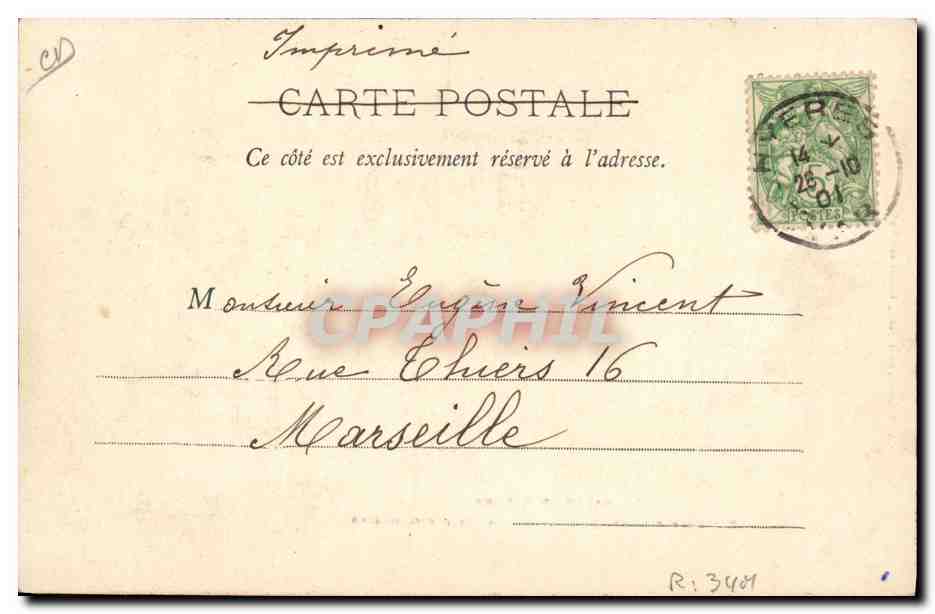 Imprimé
CARTE POSTALE
Ce côté est exclusivement réservé à l'adresse.
HYERES
14
26 -10
01
5
POSTES
Monsieur Eugène Vincent
CPAPHIL
Rue Thiers 16
Marseille
R: 3401